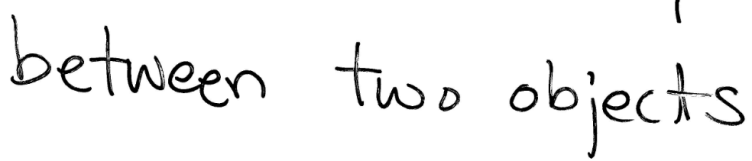 between two objects